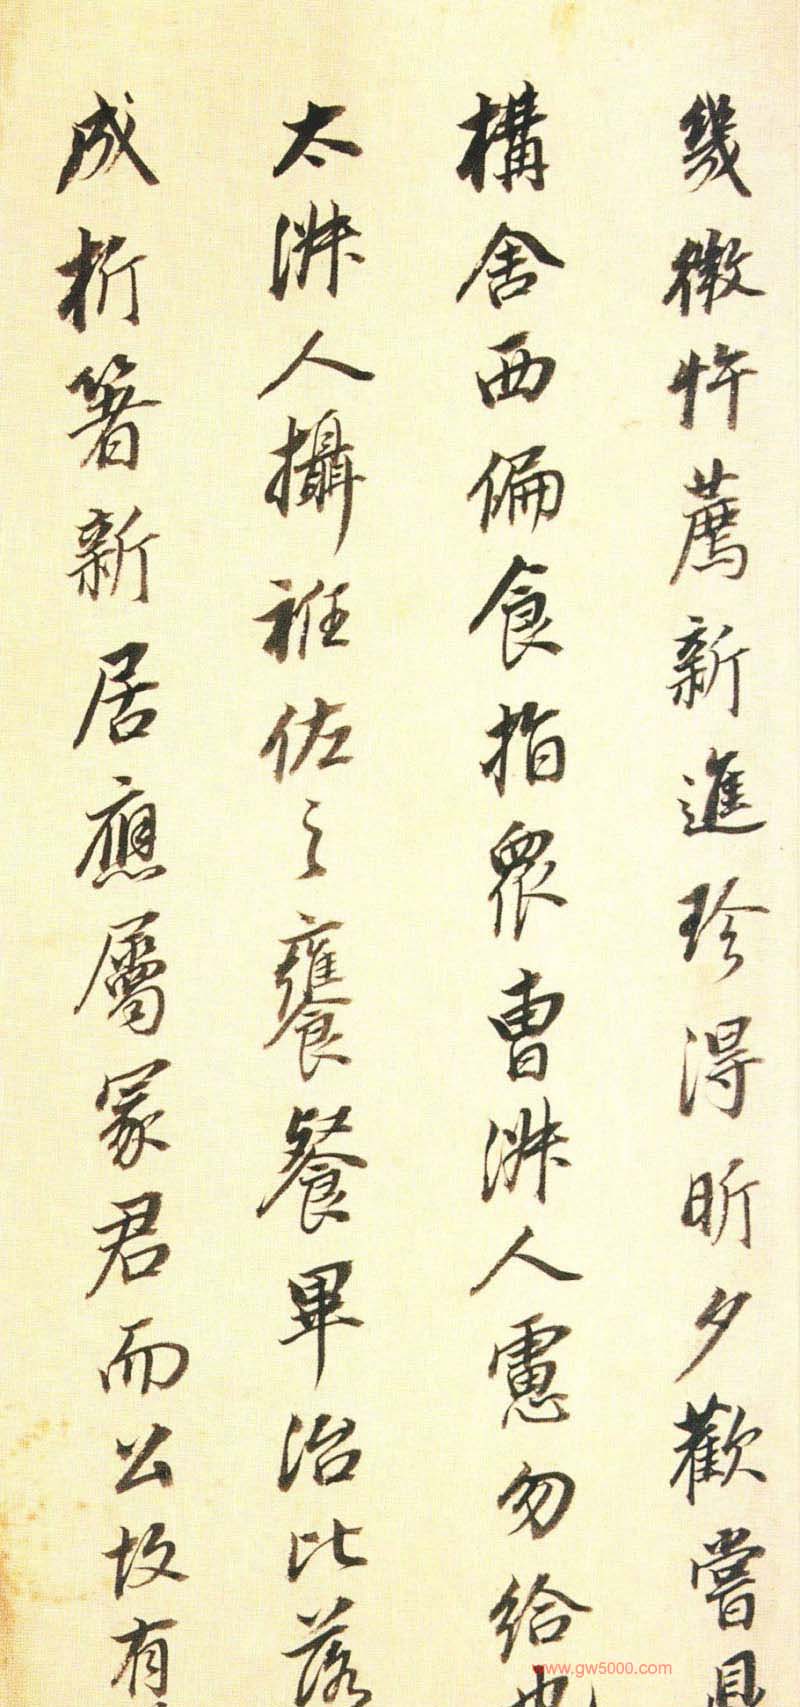 幾微忤薦新進珍得昕夕歡嘗
構舍西偏食指眾曹淑人慮勿給
太淑人攝衽佐之饔餐畢治比落
成析箸新居應屬冢君而公故有
www.gw5000.com